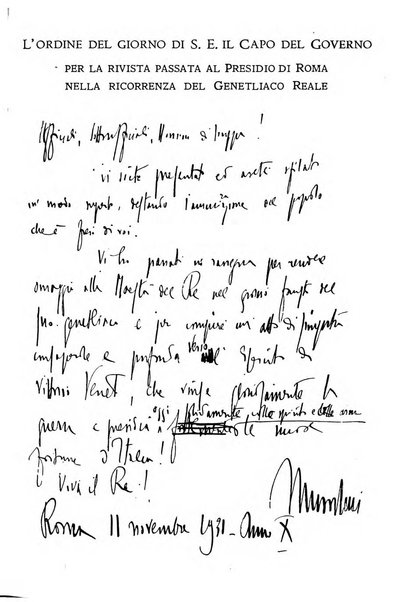 L'ORDINE DEL GIORNO DI S. E. IL CAPO DEL GOVERNO
PER LA RIVISTA PASSATA AL PRESIDIO DI ROMA
NELLA RICORRENZA DEL GENETLIACO REALE
Ufficiali, sottoufficiali, Uomini di truppa!
Vi siete presentati ed avete sfilato
in modo superbo, destando l'ammirazione del popolo
che è fiero di voi.
Vi ho passati in rassegna per rendere
omaggio alla Maestà del Re nel giorno fausto del
suo genetliaco e per compiere un atto di simpatia
cameratesca e profonda verso l'Esercito di
Vittorio Veneto, che vinse gloriosamente la
guerra e presidia oggi saldamente collo spirito e colle armi
le nuove
fortune d'Italia!
Viva il Re!
Mussolini
Roma 11 novembre 1931 - Anno X